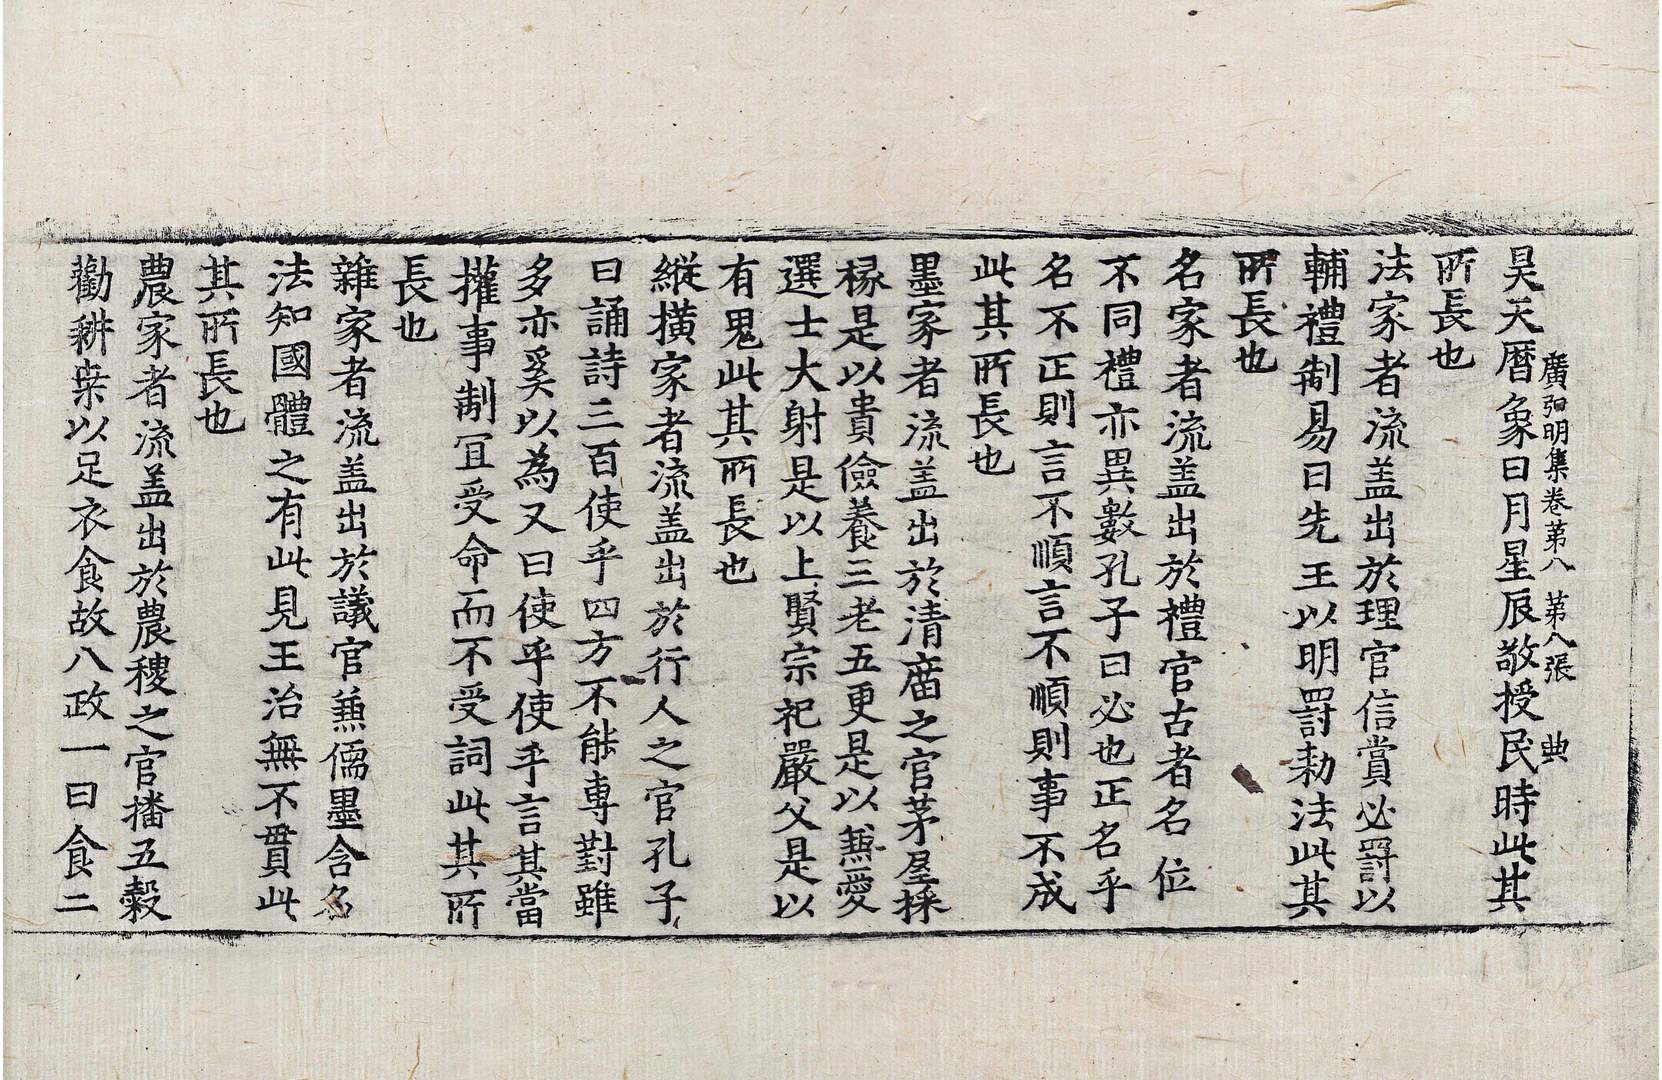 廣弘明集卷第八　第八張　典
昊天曆象日月星辰敬授民時此其
所長也
法家者流盖出於理官信賞必罸以
輔禮制易曰先王以明罸勑法此其
所長也
名家者流盖出於禮官古者名位
不同禮亦異數孔子曰必也正名乎
名不正則言不順言不順則事不成
此其所長也
墨家者流盖出於清庿之官茅屋採
椽是以貴儉養三老五更是以兼愛
選士大射是以上賢宗祀嚴父是以
有鬼此其所長也
縱橫家者流盖出於行人之官孔子
曰誦詩三百使乎四方不能專對雖
多亦奚以為又曰使乎使乎言其當
權事制冝受命而不受詞此其所
長也
雜家者流盖出於議官兼儒墨含名
法知國體之有此見王治無不貫此
其所長也
農家者流盖出於農稷之官播五穀
勸耕桒以足衣食故八政一曰食二